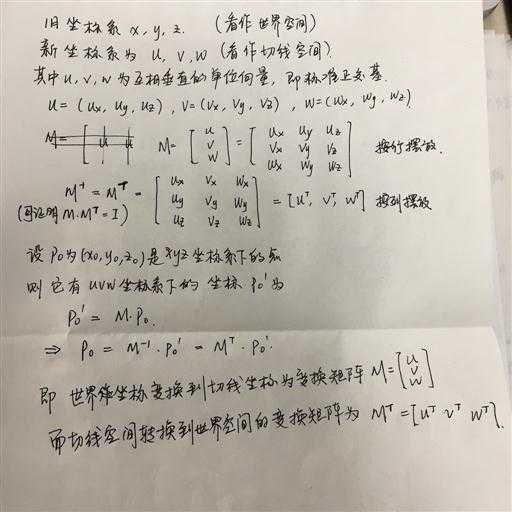 旧坐标系 x, y, z. (看作世界空间)
新坐标系为 u, v, w (看作切线空间).
其中 u, v, w 为互相垂直的单位向量, 即标准正交基.
u = (ux, uy, uz), v = (vx, vy, vz), w = (wx, wy, wz)
M = [u v w] = [ux uy uz vx vy vz wx wy wz] 按行摆放.
M⁻¹ = Mᵀ = [ux vx wx uy vy wy uz vz wz] = [uᵀ, vᵀ, wᵀ] 按列摆放
(可证明 M·Mᵀ = I)
设 P₀为 (x₀, y₀, z₀) 是 xyz 坐标系下的点
则它有 uvw 坐标系下的坐标 P₀' 为
P₀' = M·P₀.
⇒ P₀ = M⁻¹·P₀' = Mᵀ·P₀'.
即 世界坐标变换到切线坐标为变换矩阵 M = [u v w]
而切线空间转换到世界空间的变换矩阵为 Mᵀ = [uᵀ vᵀ wᵀ].